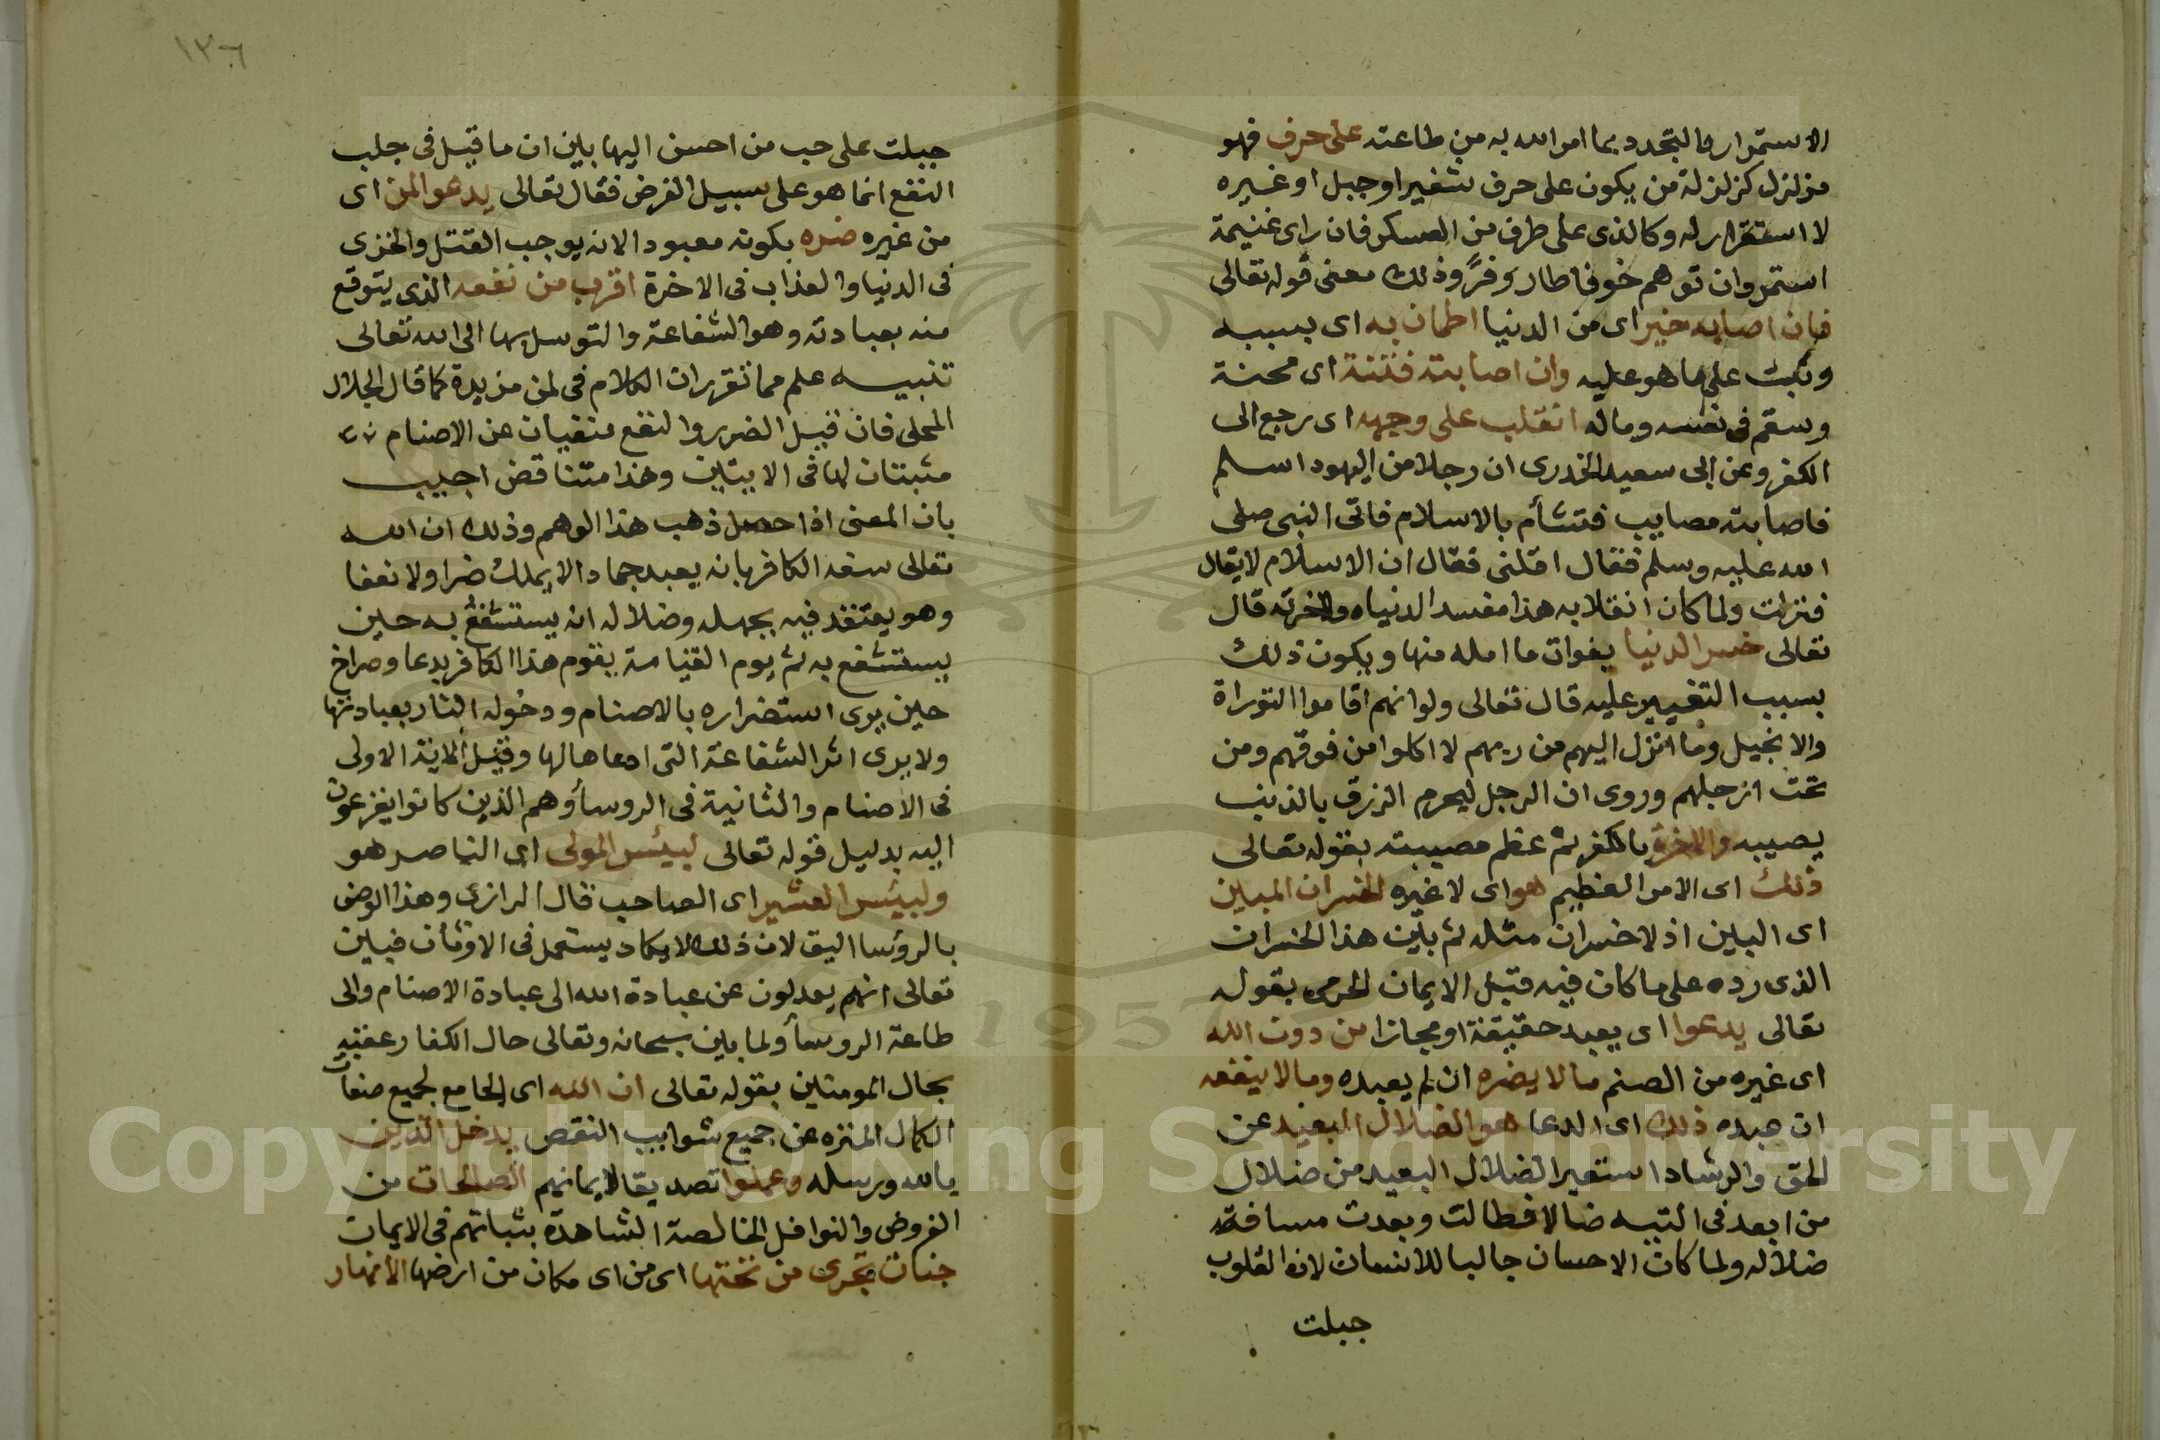 الاستمرار والتجدد بما امر الله به من طاعته على حرف فهو
مزلزل كزلزلة من يكون على حرف شفير او جبل او غيره
لا استقرار له وكالذى على طرف من العسكر فان راى غنيمة
استمر وان توهم خوفا طار وفرّ وذلك معنى قوله تعالى
فان اصابه خير اى من الدنيا اطمان به اى بسببه
وثبت على ما هو عليه وان اصابته فتنة اى محنة
وسقم فى نفسه وماله انقلب على وجهه اى رجع الى
الكفر وعن ابى سعيد الخدرى ان رجلا من اليهود اسلم
فاصابته مصايب فتشأم بالاسلام فاتى النبى صلى
الله عليه وسلم فقال اقلنى فقال ان الاسلام لا يقال
فنزلت ولما كان انقلابه هذا مفسد الدنياه ولاخرته قال
تعالى خسر الدنيا بفوات ما امله منها ويكون ذلك
بسبب التغيير عليه قال تعالى ولو انهم اقاموا التوراة
والانجيل وما انزل اليهم من ربهم لا اكلوا من فوقهم ومن
تحت ارجلهم وروى ان الرجل ليحرم الرزق بالذنب
يصيبه والاخرة بالكفر ثم عظم مصيبته بقوله تعالى
ذلك اى الامر العظيم هو اى لا غيره الخسران المبين
اى البين اذ لا خسران مثله ثم بيّن هذا الخسران
الذى رده على ما كان فيه قبل الايمان الحرمى بقوله
تعالى يدعوا اى يعبد حقيقة او مجازا من دون الله
اى غيره من الصنم ما لا يضره ان لم يعبده وما لا ينفعه
ان عبده ذلك اى الدعا هو الضلال البعيد عن
الحق والرشاد استعير الضلال البعيد من ضلال
من ابعد فى التيه ضالا فطالت وبعدت مسافة
ضلاله ولما كان الاحسان جالبا للانسان لان القلوب
جبلت
١٢٦
جبلت على حب من احسن اليها بين ان ما قيل فى جلب
النفع انما هو على سبيل الفرض فقال تعالى يدعوا لمن اى
من غيره ضره بكونه معبودا لانه يوجب القتل والخزى
فى الدنيا والعذاب فى الاخرة اقرب من نفعه الذى يتوقع
منه بعبادته وهو الشفاعة والتوسل بها الى الله تعالى
تنبيه علم مما تقرر ان الكلام فى لمن مزيدة كما قال الجلال
المحلى فان قيل الضرر والنفع منفيان عن الاصنام
مثبتان لها فى الايتين وهذا متناقض اجيب
بان المعنى اذا حصل ذهب هذا الوهم وذلك ان الله
تعالى سفه الكافر بانه يعبد جمادا لا يملك ضرا ولا نفعا
وهو يعتقد فيه بجهله وضلاله انه يستشفع به حين
يستشفع به ثم يوم القيامة يقوم هذا الكافر بدعا وصراخ
حين يرى استضراره بالاصنام ودخوله النار بعبادتها
ولا يرى اثر الشفاعة التى ادعاها لها وقيل الاية الاولى
فى الاصنام والثانية فى الروسأ وهم الذين كانوا يفزعون
اليه بدليل قوله تعالى لبيئس المولى اى الناصر هو
ولبيئس العشير اى الصاحب قال الرازى وهذا الوصف
بالرؤسا اليق لان ذلك لا يكاد يستعمل فى الاوثان فبين
تعالى انهم يعدلون عن عبادة الله الى عبادة الاصنام والى
طاعة الروسأ ولما بين سبحانه وتعالى حال الكفار عقبه
بحال المومنين بقوله تعالى ان الله اى الجامع لجميع صفات
الكمال المنزه عن جميع شوايب النقص يدخل الذين
بالله ورسله وعملوا تصديقا لايمانهم الصالحات من
الفروض والنوافل الخالصة الشاهدة بثباتهم فى الايمان
جنات تجرى من تحتها اى من اى مكان من ارضها الانهار
Copyright © King Saud University
1957